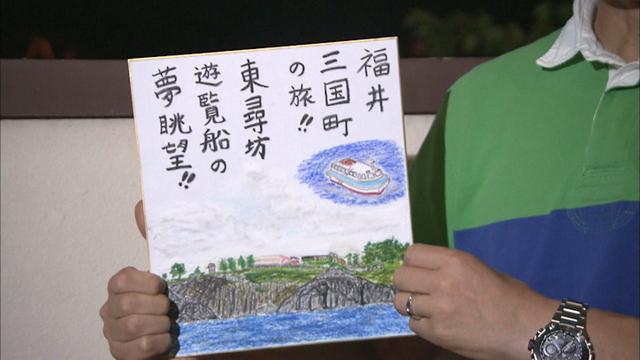 福井
三国町
の旅!!
東尋坊
遊覧船の
夢眺望!!